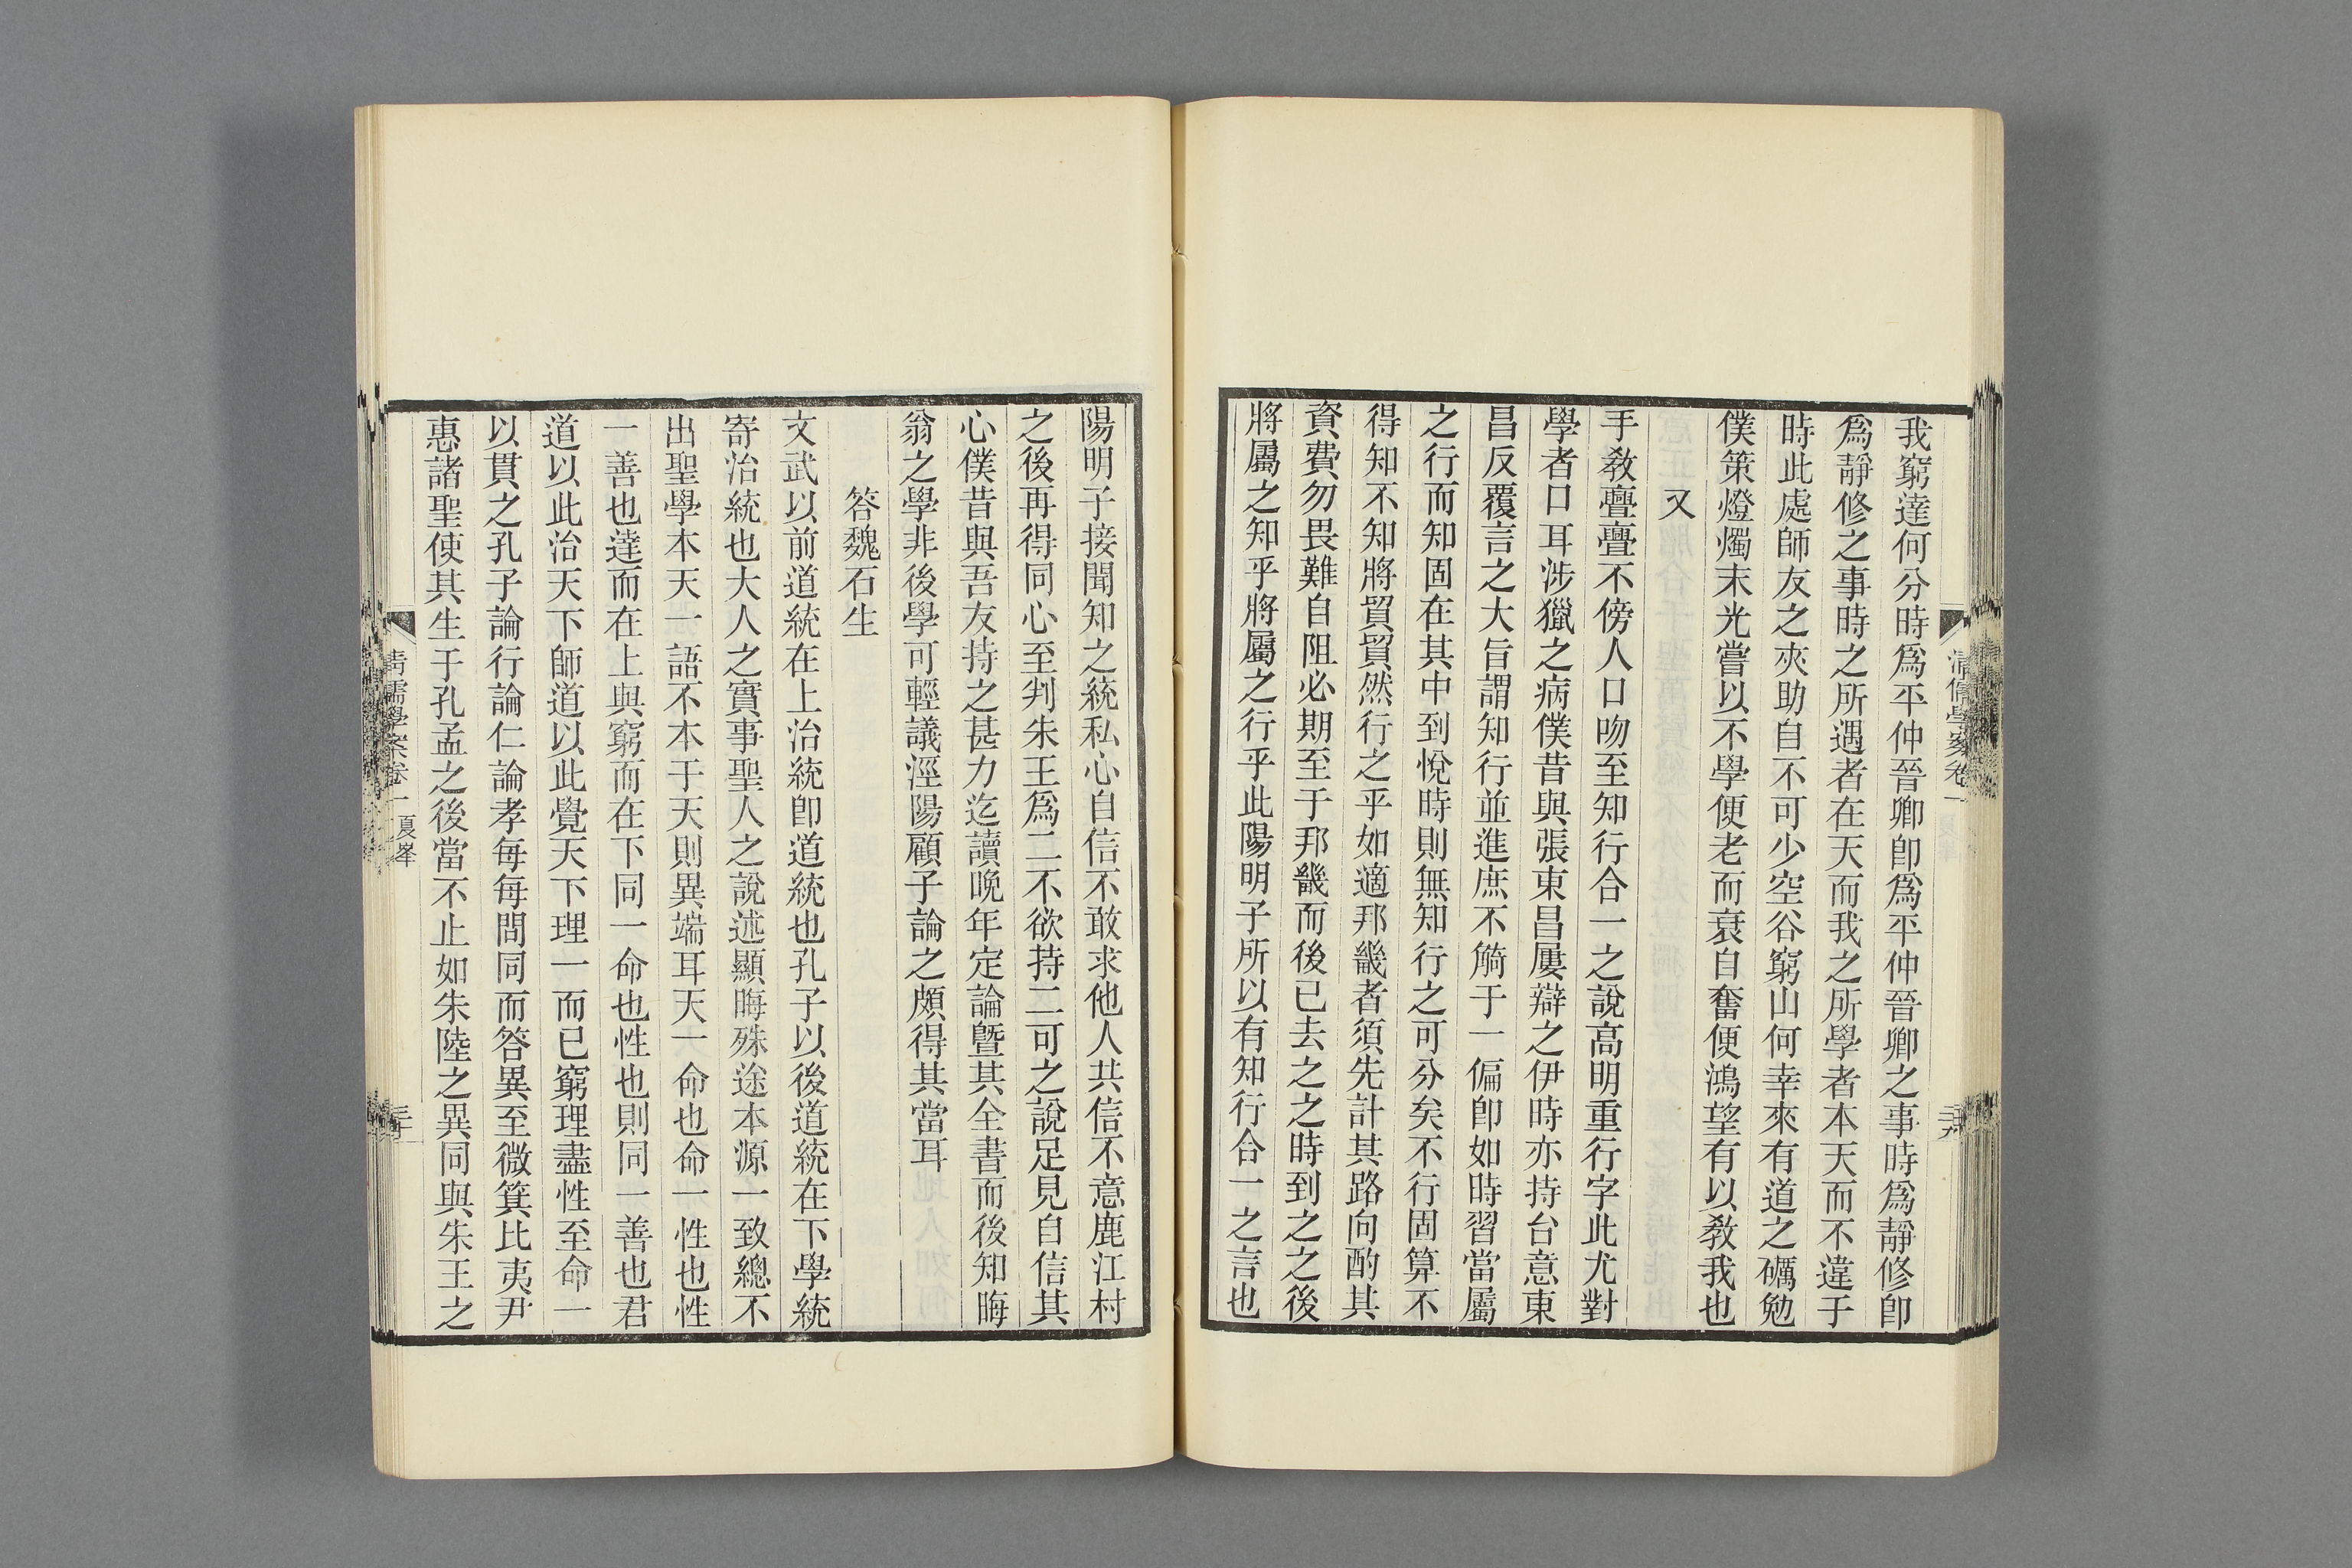 我窮達何分時爲平仲晉卿卽爲平仲晉卿之事時爲靜修卽
爲靜修之事時之所遇者在天而我之所學者本天而不違于
時此處師友之夾助自不可少空谷窮山何幸來有道之礪勉
僕策燈燭末光嘗以不學便老而衰自奮便鴻望有以敎我也
又
手敎亹亹不傍人口吻至知行合一之說高明重行字此尤對
學者口耳涉獵之病僕昔與張東昌屢辯之伊時亦持台意東
昌反覆言之大旨謂知行並進庶不觭于一偏卽如時習當屬
之行而知固在其中到悅時則無知行之可分矣不行固算不
得知不知將貿貿然行之乎如適邦畿者須先計其路向酌其
資費勿畏難自阻必期至于邦畿而後已去之之時到之之後
將屬之知乎將屬之行乎此陽明子所以有知行合一之言也
陽明子接聞知之統私心自信不敢求他人共信不意鹿江村
之後再得同心至判朱王爲二不欲持二可之說足見自信其
心僕昔與吾友持之甚力迄讀晚年定論暨其全書而後知晦
翁之學非後學可輕議涇陽顧子論之頗得其當耳
答魏石生
文武以前道統在上治統卽道統也孔子以後道統在下學統
寄治統也大人之實事聖人之說述顯晦殊途本源一致總不
出聖學本天一語不本于天則異端耳天一命也命一性也性
一善也達而在上與窮而在下同一命也性也則同一善也君
道以此治天下師道以此覺天下理一而已窮理盡性至命一
以貫之孔子論行論仁論孝每每問同而答異至微箕比夷尹
惠諸聖使其生于孔孟之後當不止如朱陸之異同與朱王之
清儒學案卷一 夏峯